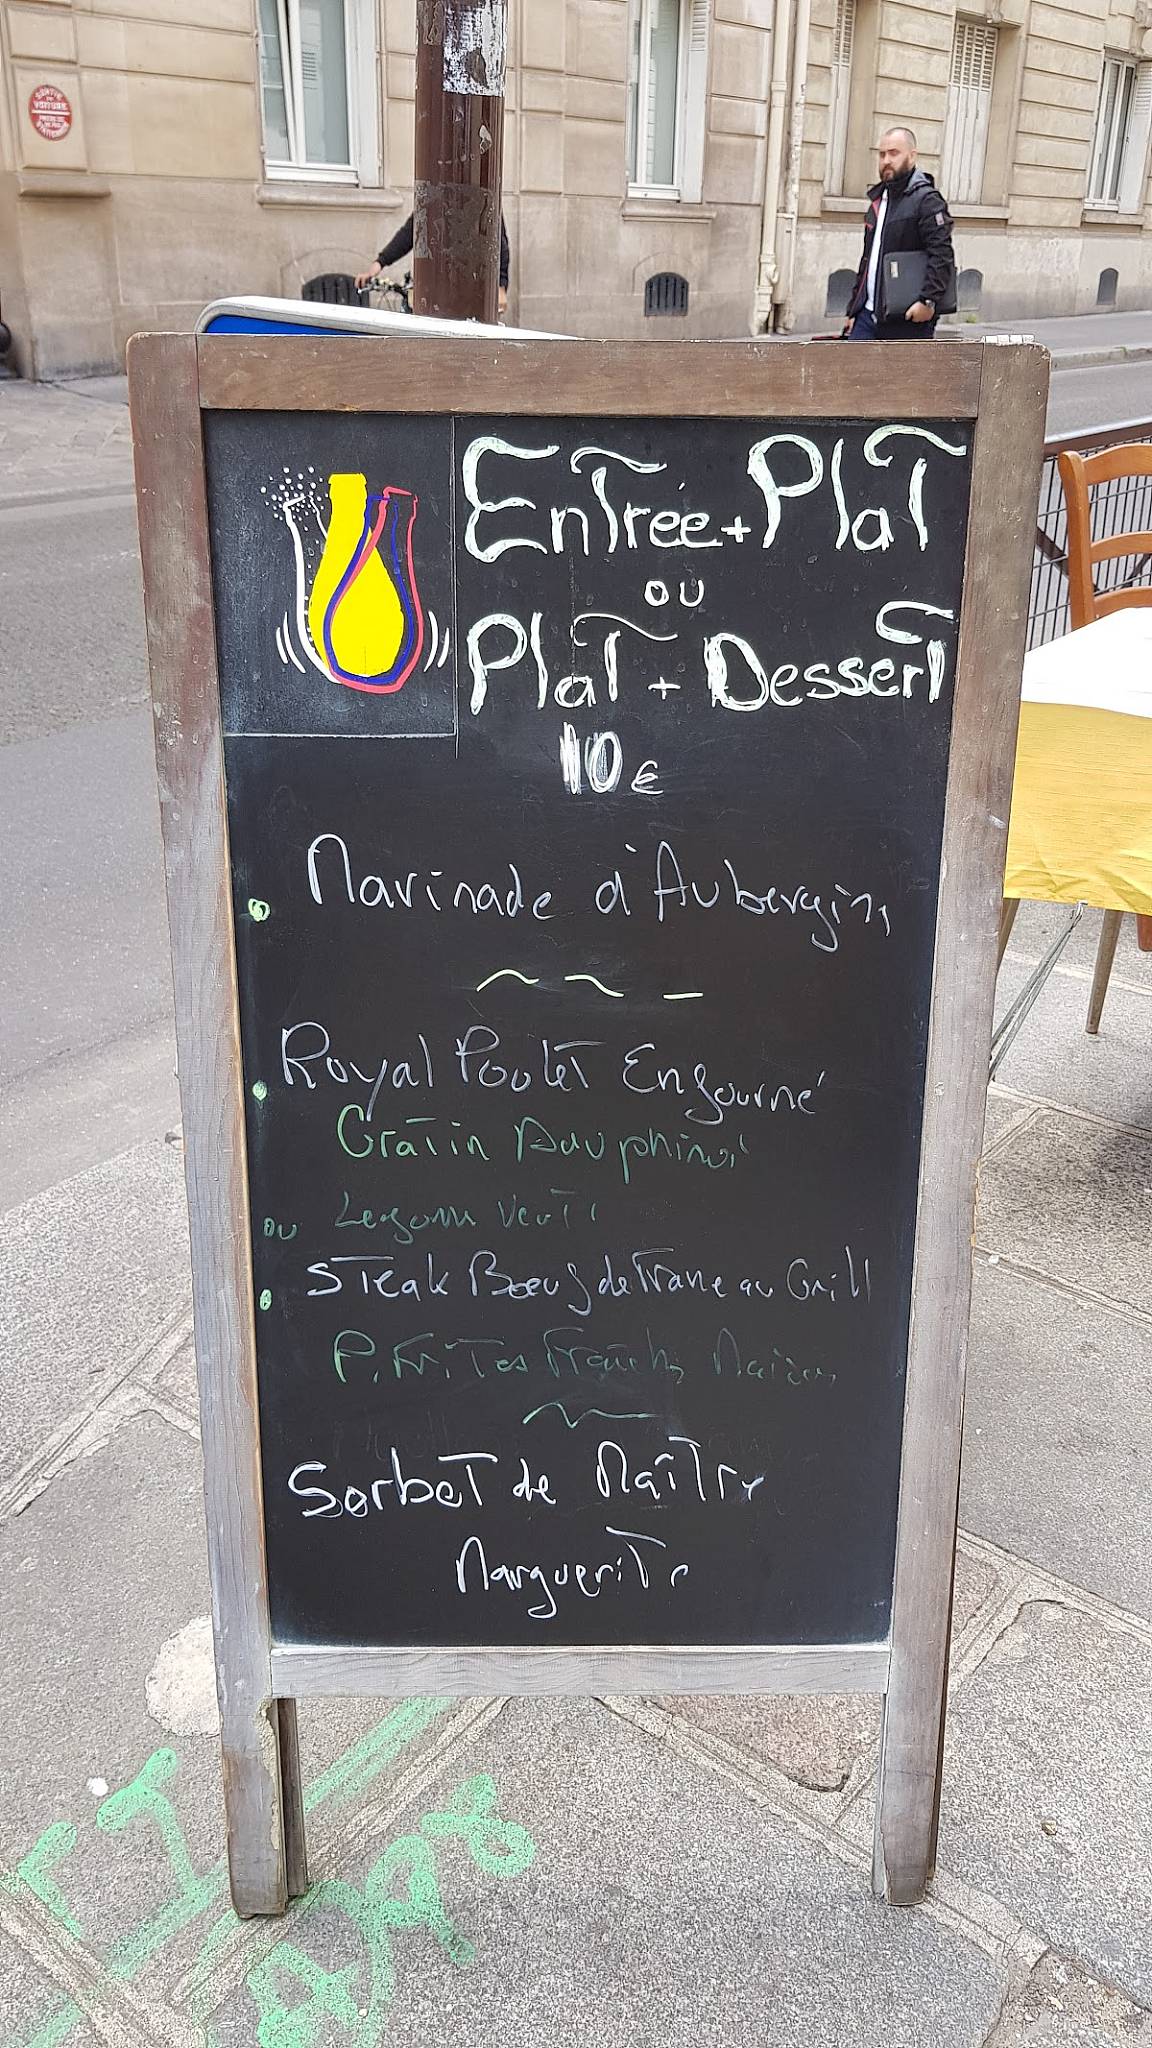 SORTIE DE VOITURE
Entrée + Plat
ou
Plat + Dessert
10€
Marinade d'Aubergine
Royal Poulet Enfourné
Gratin Dauphinoi
ou Legume Verts
Steak Boeuf de France au Grill
P. Frites Fraîches Maison
Sorbet de Maître
Marguerite